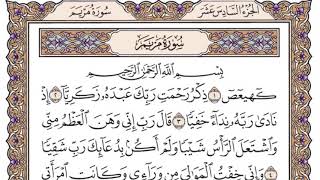 الجزء السادس عشر
سورة مريم
سورة مريم
بسم الله الرحمن الرحيم
كهيعص ١ ذكر رحمت ربك عبده زكريا ٢ إذ
نادى ربه نداء خفيا ٣ قال رب إني وهن العظم مني
واشتعل الرأس شيبا ولم أكن بدعائك رب شقيا ٤
وإني خفت الموالي من وراءي وكانت امرأتي